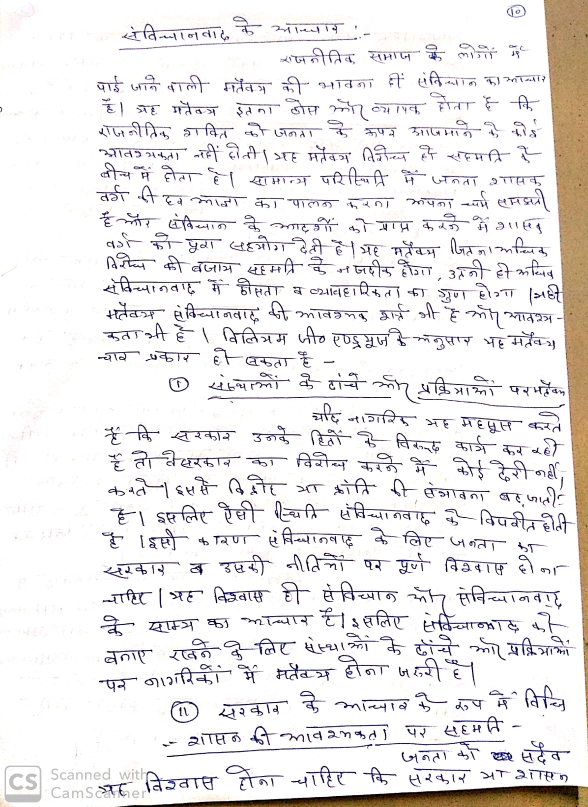 10
संविधानवाद के आधार :-
राजनीतिक समाज के लोगों में
पाई जाने वाली मतैक्य की भावना ही संविधान का आधार
है। यह मतैक्य इतना ठोस और व्यापक होता है कि
राजनीतिक शक्ति को जनता के ऊपर आजमाने के कोई
आवश्यकता नहीं होती। यह मतैक्य विरोध से सहमति के
बीच में होता है। सामान्य परिस्थिति में जनता शासक
वर्ग की हर आज्ञा का पालन करना अपना धर्म समझती
है और संविधान के आदर्शों को प्राप्त करने में शासक
वर्ग को पूरा सहयोग देती है। यह मतैक्य जितना अधिक
विरोध की बजाय सहमति के नजदीक होगा, उतनी ही अधिक
संविधानवाद में ठोसता व व्यावहारिकता का गुण होगा। यही
मतैक्य संविधानवाद की आवश्यक शर्त भी है और आवश्य-
कता भी है। विलियम जी० एण्ड्रयूज के अनुसार यह मतैक्य
चार प्रकार हो सकता है -
(I) संस्थाओं के ढांचे और प्रक्रियाओं पर मतैक्य
यदि नागरिक यह महसूस करते
हैं कि सरकार उनके हितों के विरुद्ध कार्य कर रही
है तो वे सरकार का विरोध करने में कोई देरी नहीं
करते। इससे विद्रोह या क्रांति की संभावना बढ़ जाती
है। इसलिए ऐसी स्थिति संविधानवाद के विपरीत होती
है। इसी कारण संविधानवाद के लिए जनता का
सरकार व उसकी नीतियों पर पूर्ण विश्वास होना
चाहिए। यह विश्वास ही संविधान और संविधानवाद
के साम्य का आधार है। इसलिए संविधानवाद को
बनाए रखने के लिए संस्थाओं के ढांचे और प्रक्रियाओं
पर नागरिकों में मतैक्य होना जरुरी है।
(II) सरकार के आधार के रुप में विधि
- शासन की आवश्यकता पर सहमति -
जनता को सदैव
यह विश्वास होना चाहिए कि सरकार या शासन
CS Scanned with
CamScanner